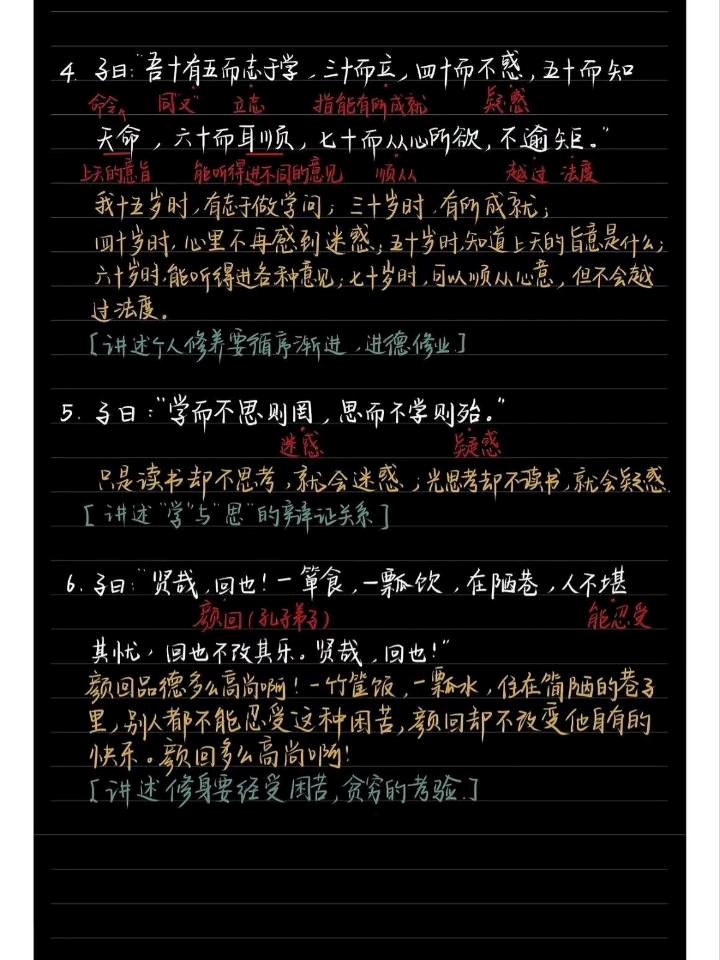 4. 子曰:"吾十有五而志于学，三十而立，四十而不惑，五十而知
同"又" 立志 指能有所成就 疑惑
天命，六十而耳顺，七十而从心所欲，不逾矩。"
上天的意旨 能听得进不同的意见 顺从 越过 法度
我十五岁时，有志于做学问；三十岁时，有所成就；
四十岁时，心里不再感到迷惑；五十岁时，知道上天的旨意是什么；
六十岁时，能听得进各种意见；七十岁时，可以顺从心意，但不会越
过法度。
[讲述个人修养要循序渐进，进德修业]
5. 子曰："学而不思则罔，思而不学则殆。"
迷惑 疑惑
只是读书却不思考，就会迷惑；光思考却不读书，就会疑惑.
[讲述"学"与"思"的辩证关系]
6. 子曰："贤哉，回也！一箪食，一瓢饮，在陋巷，人不堪
颜回(孔子弟子) 能忍受
其忧，回也不改其乐。贤哉，回也！"
颜回品德多么高尚啊！一竹筐饭，一瓢水，住在简陋的巷子
里，别人都不能忍受这种困苦，颜回却不改变他自有的
快乐。颜回多么高尚啊！
[讲述修身要经受困苦，贫穷的考验.]